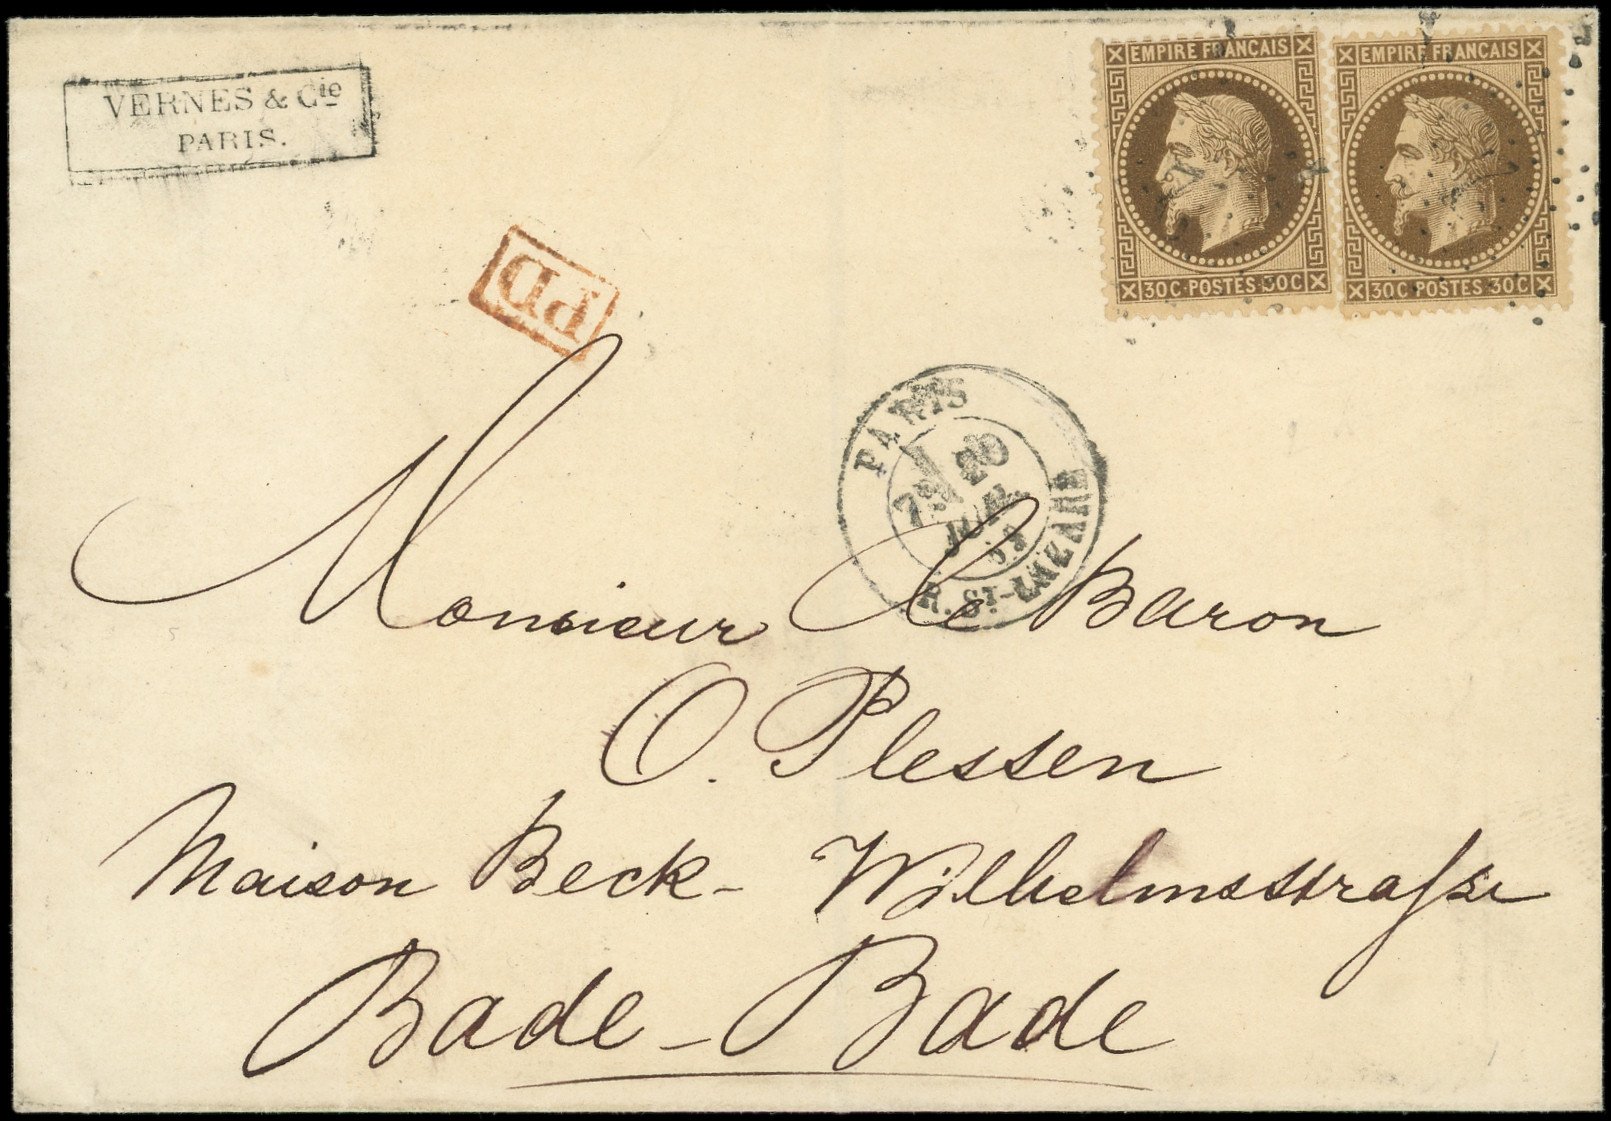 VERNES & Cie
PARIS.
EMPIRE FRANCAIS
30C·POSTES·30C
EMPIRE FRANCAIS
30C·POSTES·30C
PD
PARIS
7E 20
JUIL.
R. ST-LAZARE
Monsieur Le Baron
O. Plessen
Maison Beck - Wilhelmsstraße
Bade - Bade